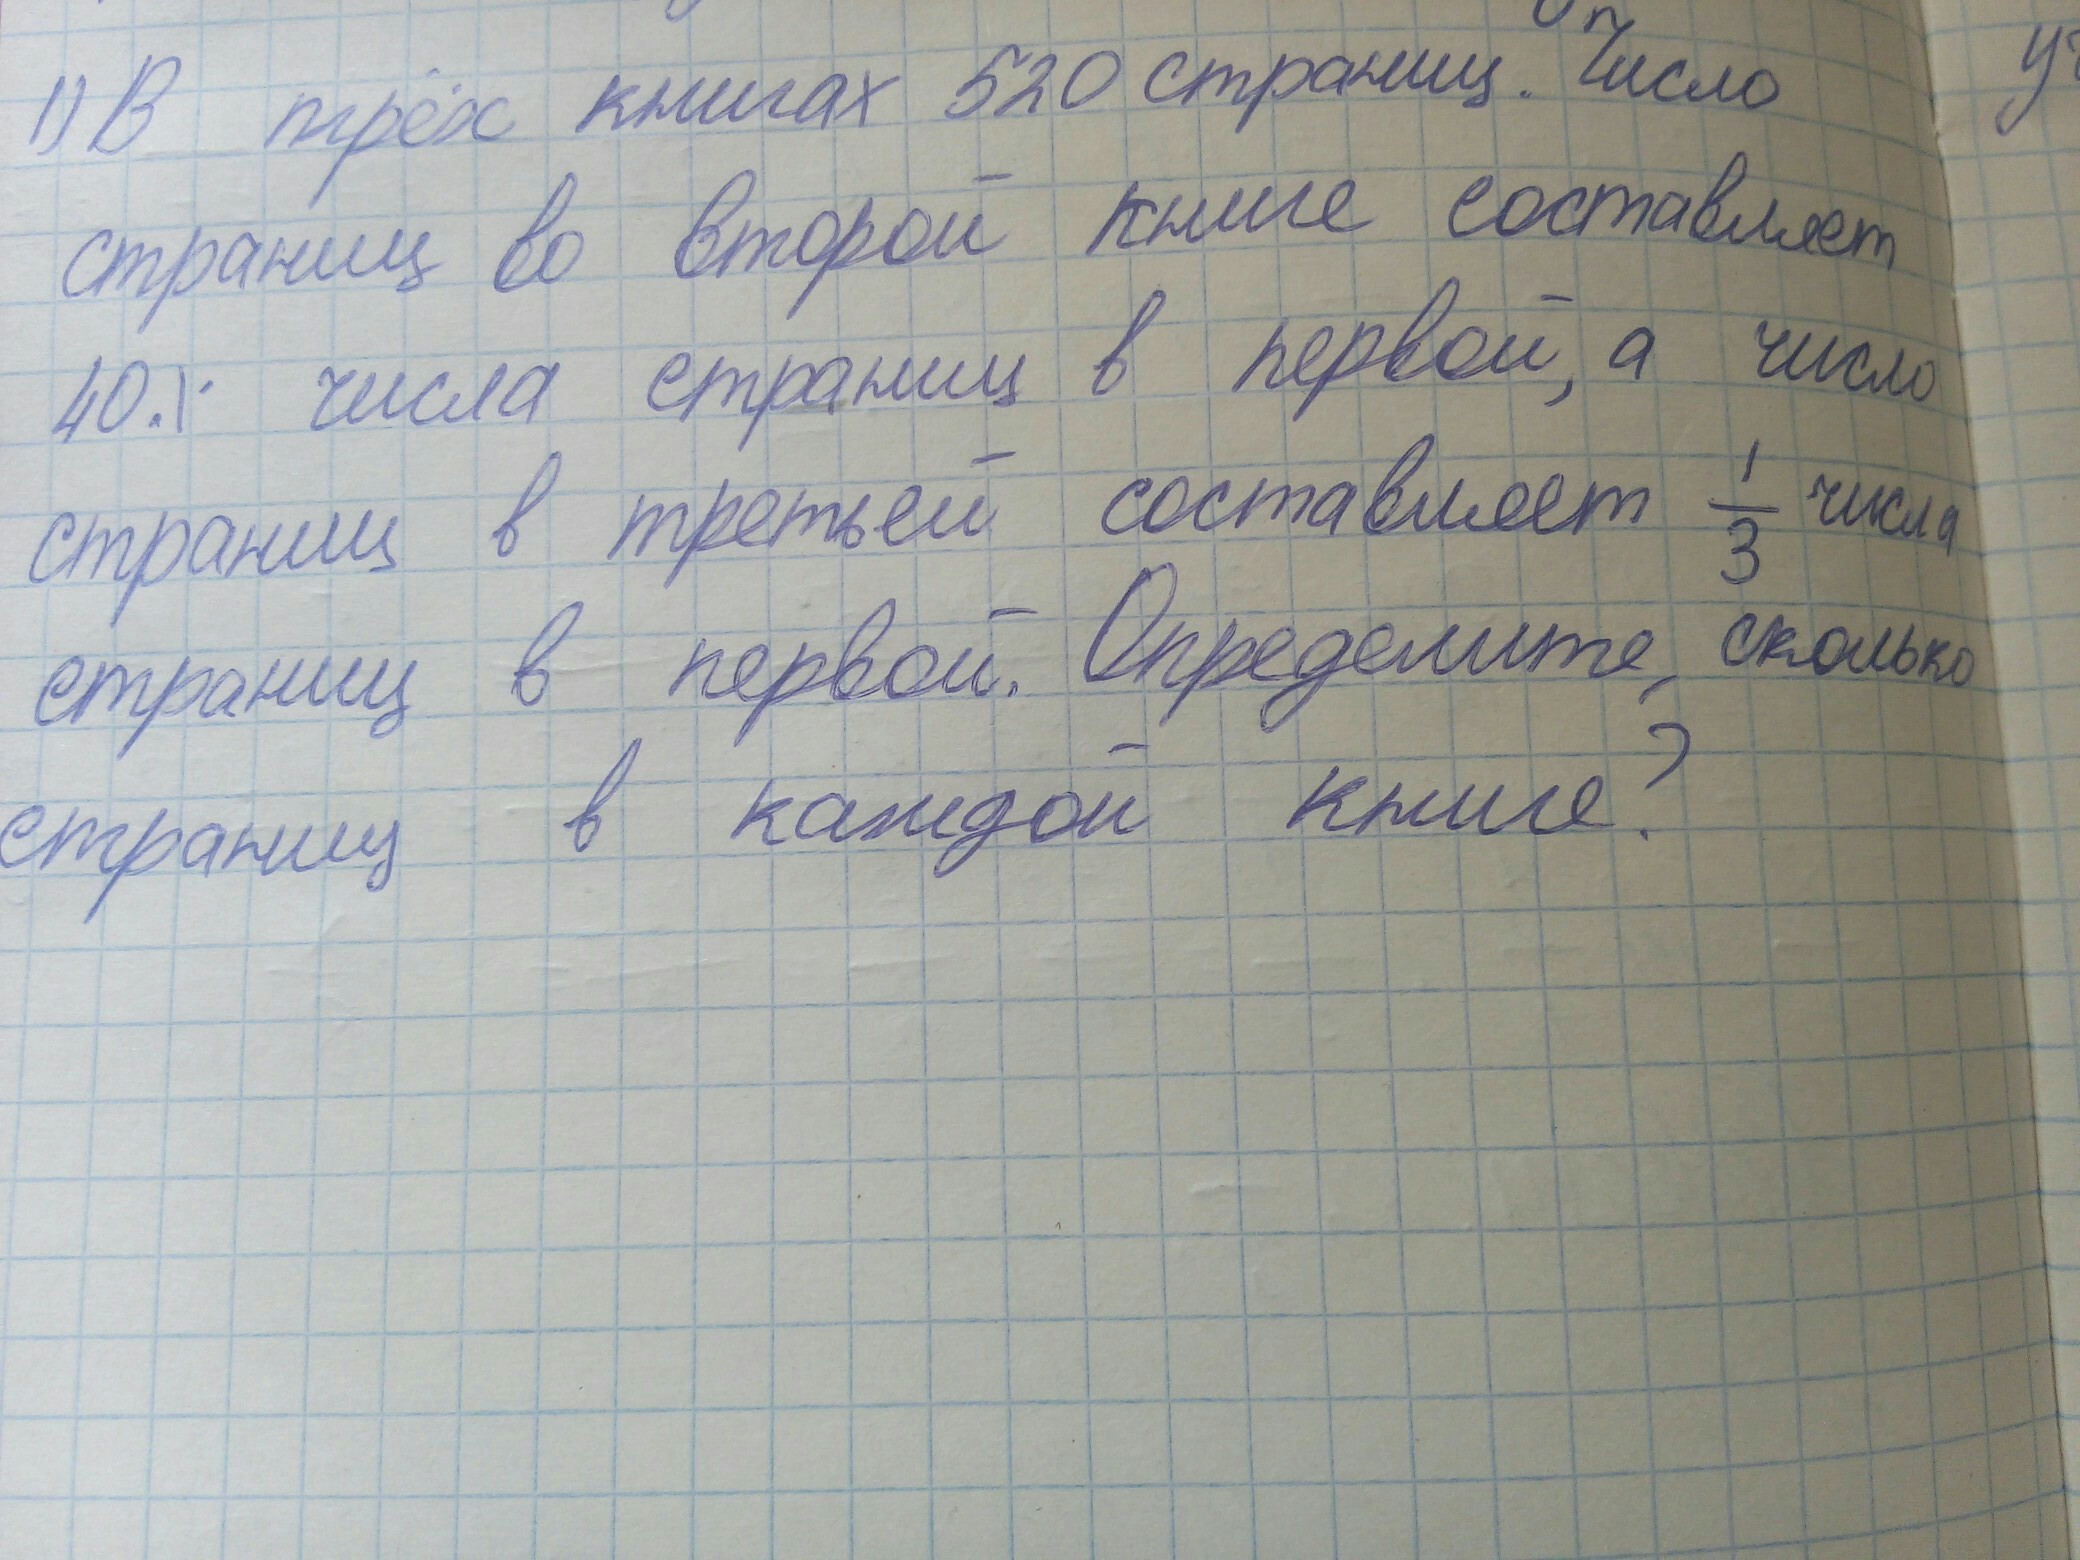 1) В трёх книгах 520 страниц. Число
страниц во второй книге составляет
40% числа страниц в первой, а число
страниц в третьей составляет 1/3 числа
страниц в первой. Определите, сколько
страниц в каждой книге?